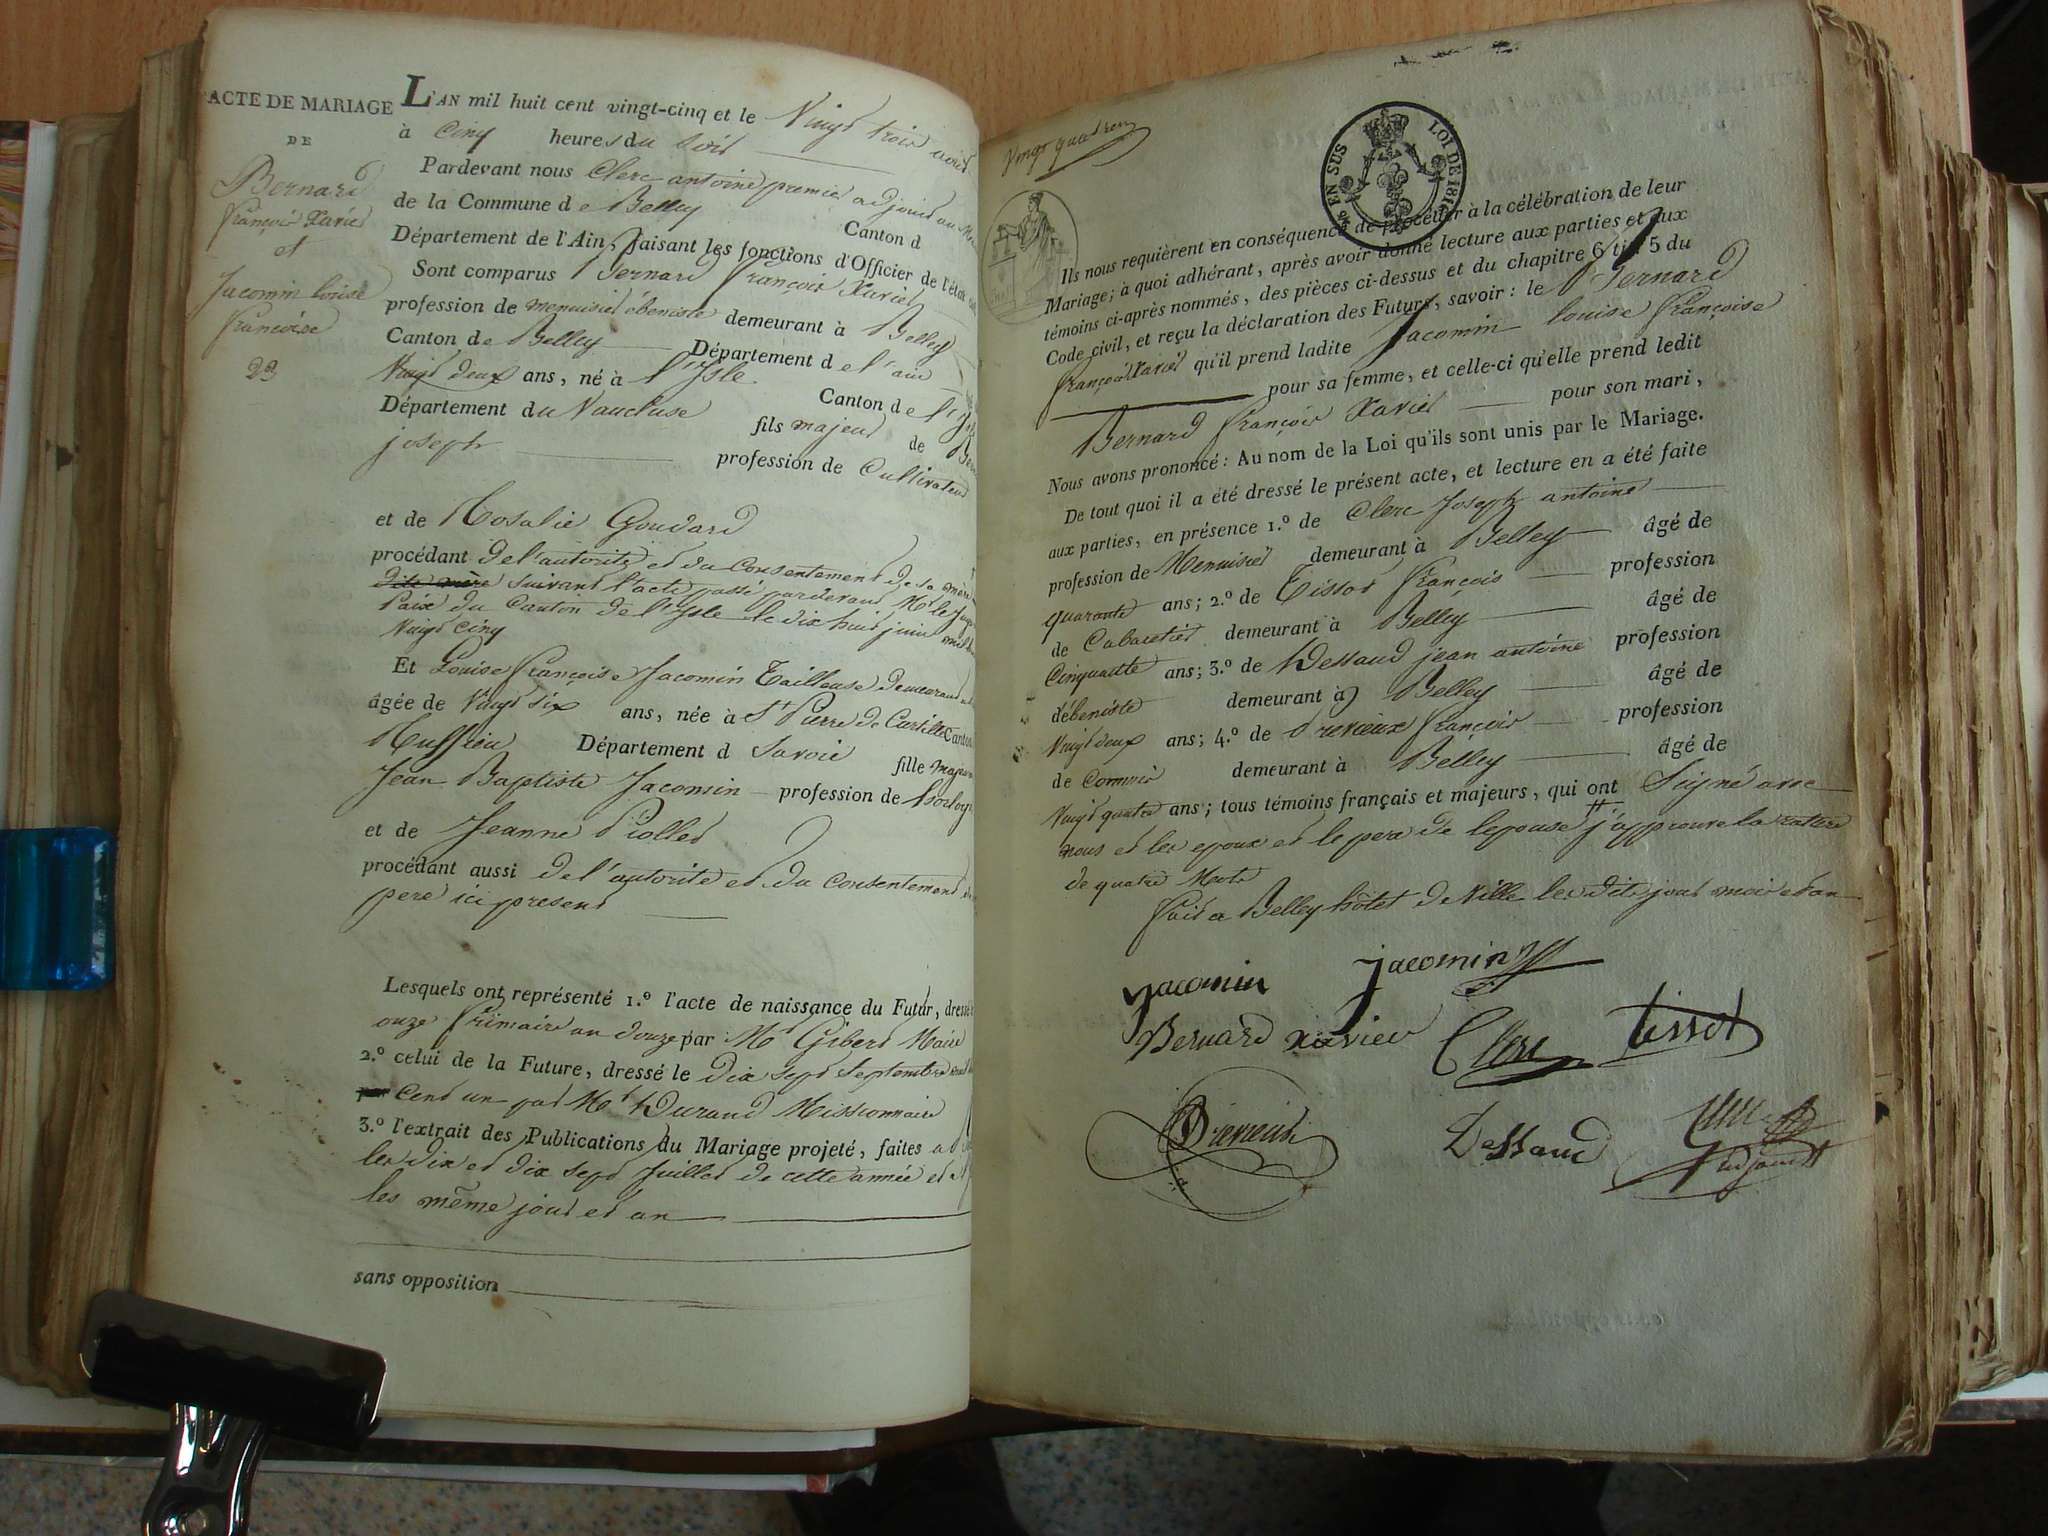 ACTE DE MARIAGE
DE
Bernard
françois Xavier
et
Jacomin louise
françoise
23
L'AN mil huit cent vingt-cinq et le Vingt trois août
à Cinq heures du soir
Pardevant nous Clerc antoine premier adjoint au
de la Commune de Belley Canton d
Département de l'Ain, faisant les fonctions d'Officier de l'état
Sont comparus Bernard François Xavier
profession de menuisier ébeniste demeurant à Belley
Canton de Belley Département de l'ain
Vingt deux ans, né à l'Isle Canton de
Département du Vaucluse fils majeur de
joseph profession de Cultivateur
et de Rosalie Goudard
procédant de l'autorité et du Consentement de sa mère
dite mère suivant l'acte passé pardevant Mr le juge
Paix du Canton de l'Isle le dix huit juin
Vingt Cinq
Et Louise françoise Jacomin Tailleuse demeurant
âgée de Vingt six ans, née à St Pierre de Curtille Canton
Ruffieu Département d Savoie fille
Jean Baptiste Jacomin profession de
et de Jeanne Piollet
procédant aussi de l'autorité et du Consentement
pere ici present
Lesquels ont représenté 1.º l'acte de naissance du Futur, dressé
onze frimaire an douze par Mr Gibert Maire
2.º celui de la Future, dressé le dix sept septembre
par Cent un par Mr Durand Missionnaire
3.º l'extrait des Publications du Mariage projeté, faites a
les dix et dix sept Juillet de cette année et
les même jour et an
sans opposition
Vingt quatre
EN SUS
LOI DE 1816
Ils nous requièrent en conséquence de procéder à la célébration de leur
Mariage; à quoi adhérant, après avoir donné lecture aux parties et aux
témoins ci-après nommés, des pièces ci-dessus et du chapitre 6 tit. 5 du
Code civil, et reçu la déclaration des Futurs, savoir: le Bernard
françois Xavier qu'il prend ladite Jacomin louise françoise
pour sa femme, et celle-ci qu'elle prend ledit
Bernard françois Xavier pour son mari,
Nous avons prononcé: Au nom de la Loi qu'ils sont unis par le Mariage.
De tout quoi il a été dressé le présent acte, et lecture en a été faite
aux parties, en présence 1.º de Clerc Joseph antoine âgé de
profession de Menuisier demeurant à Belley profession
quarante ans; 2.º de Tissot françois âgé de
de Cabaretier demeurant à Belley profession
Cinquante ans; 3.º de Dessaud jean antoine âgé de
débeniste demeurant à Belley profession
Vingt deux ans; 4.º de Drevieux françois âgé de
de Commis demeurant à Belley
Vingt quatre ans; tous témoins français et majeurs, qui ont Signé avec
nous et les epoux et le pere de lepouse j'approuve la rature
de quatre Mots
fait a Belley hôtel de Ville les dits jour mois et an
jacomin jacomin
Bernard xavier Clerc tissot
Drevieux Dessaud Clerc
adjoint